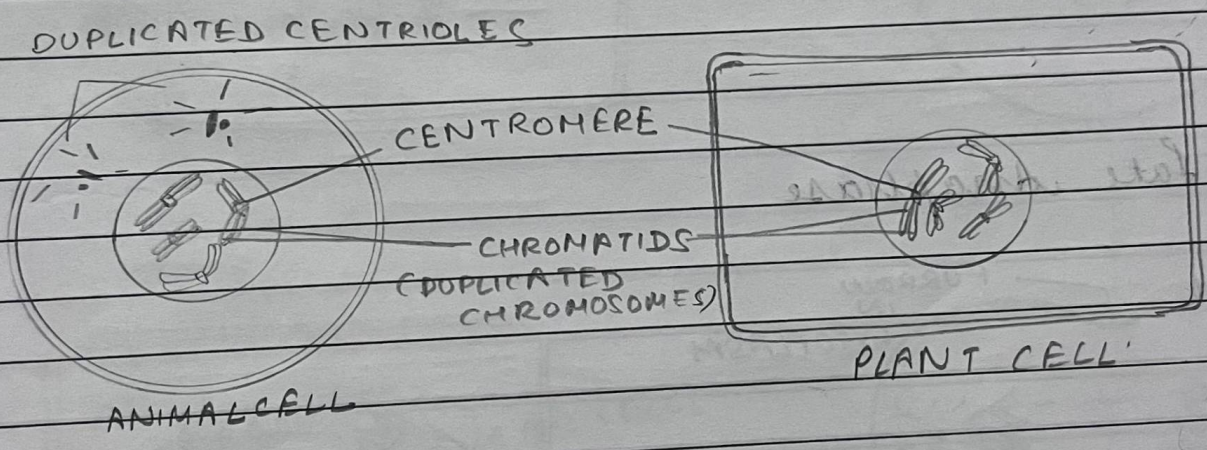 DUPLICATED CENTRIOLES
CENTROMERE
CHROMATIDS
(DUPLICATED
CHROMOSOMES)
PLANT CELL
ANIMAL CELL